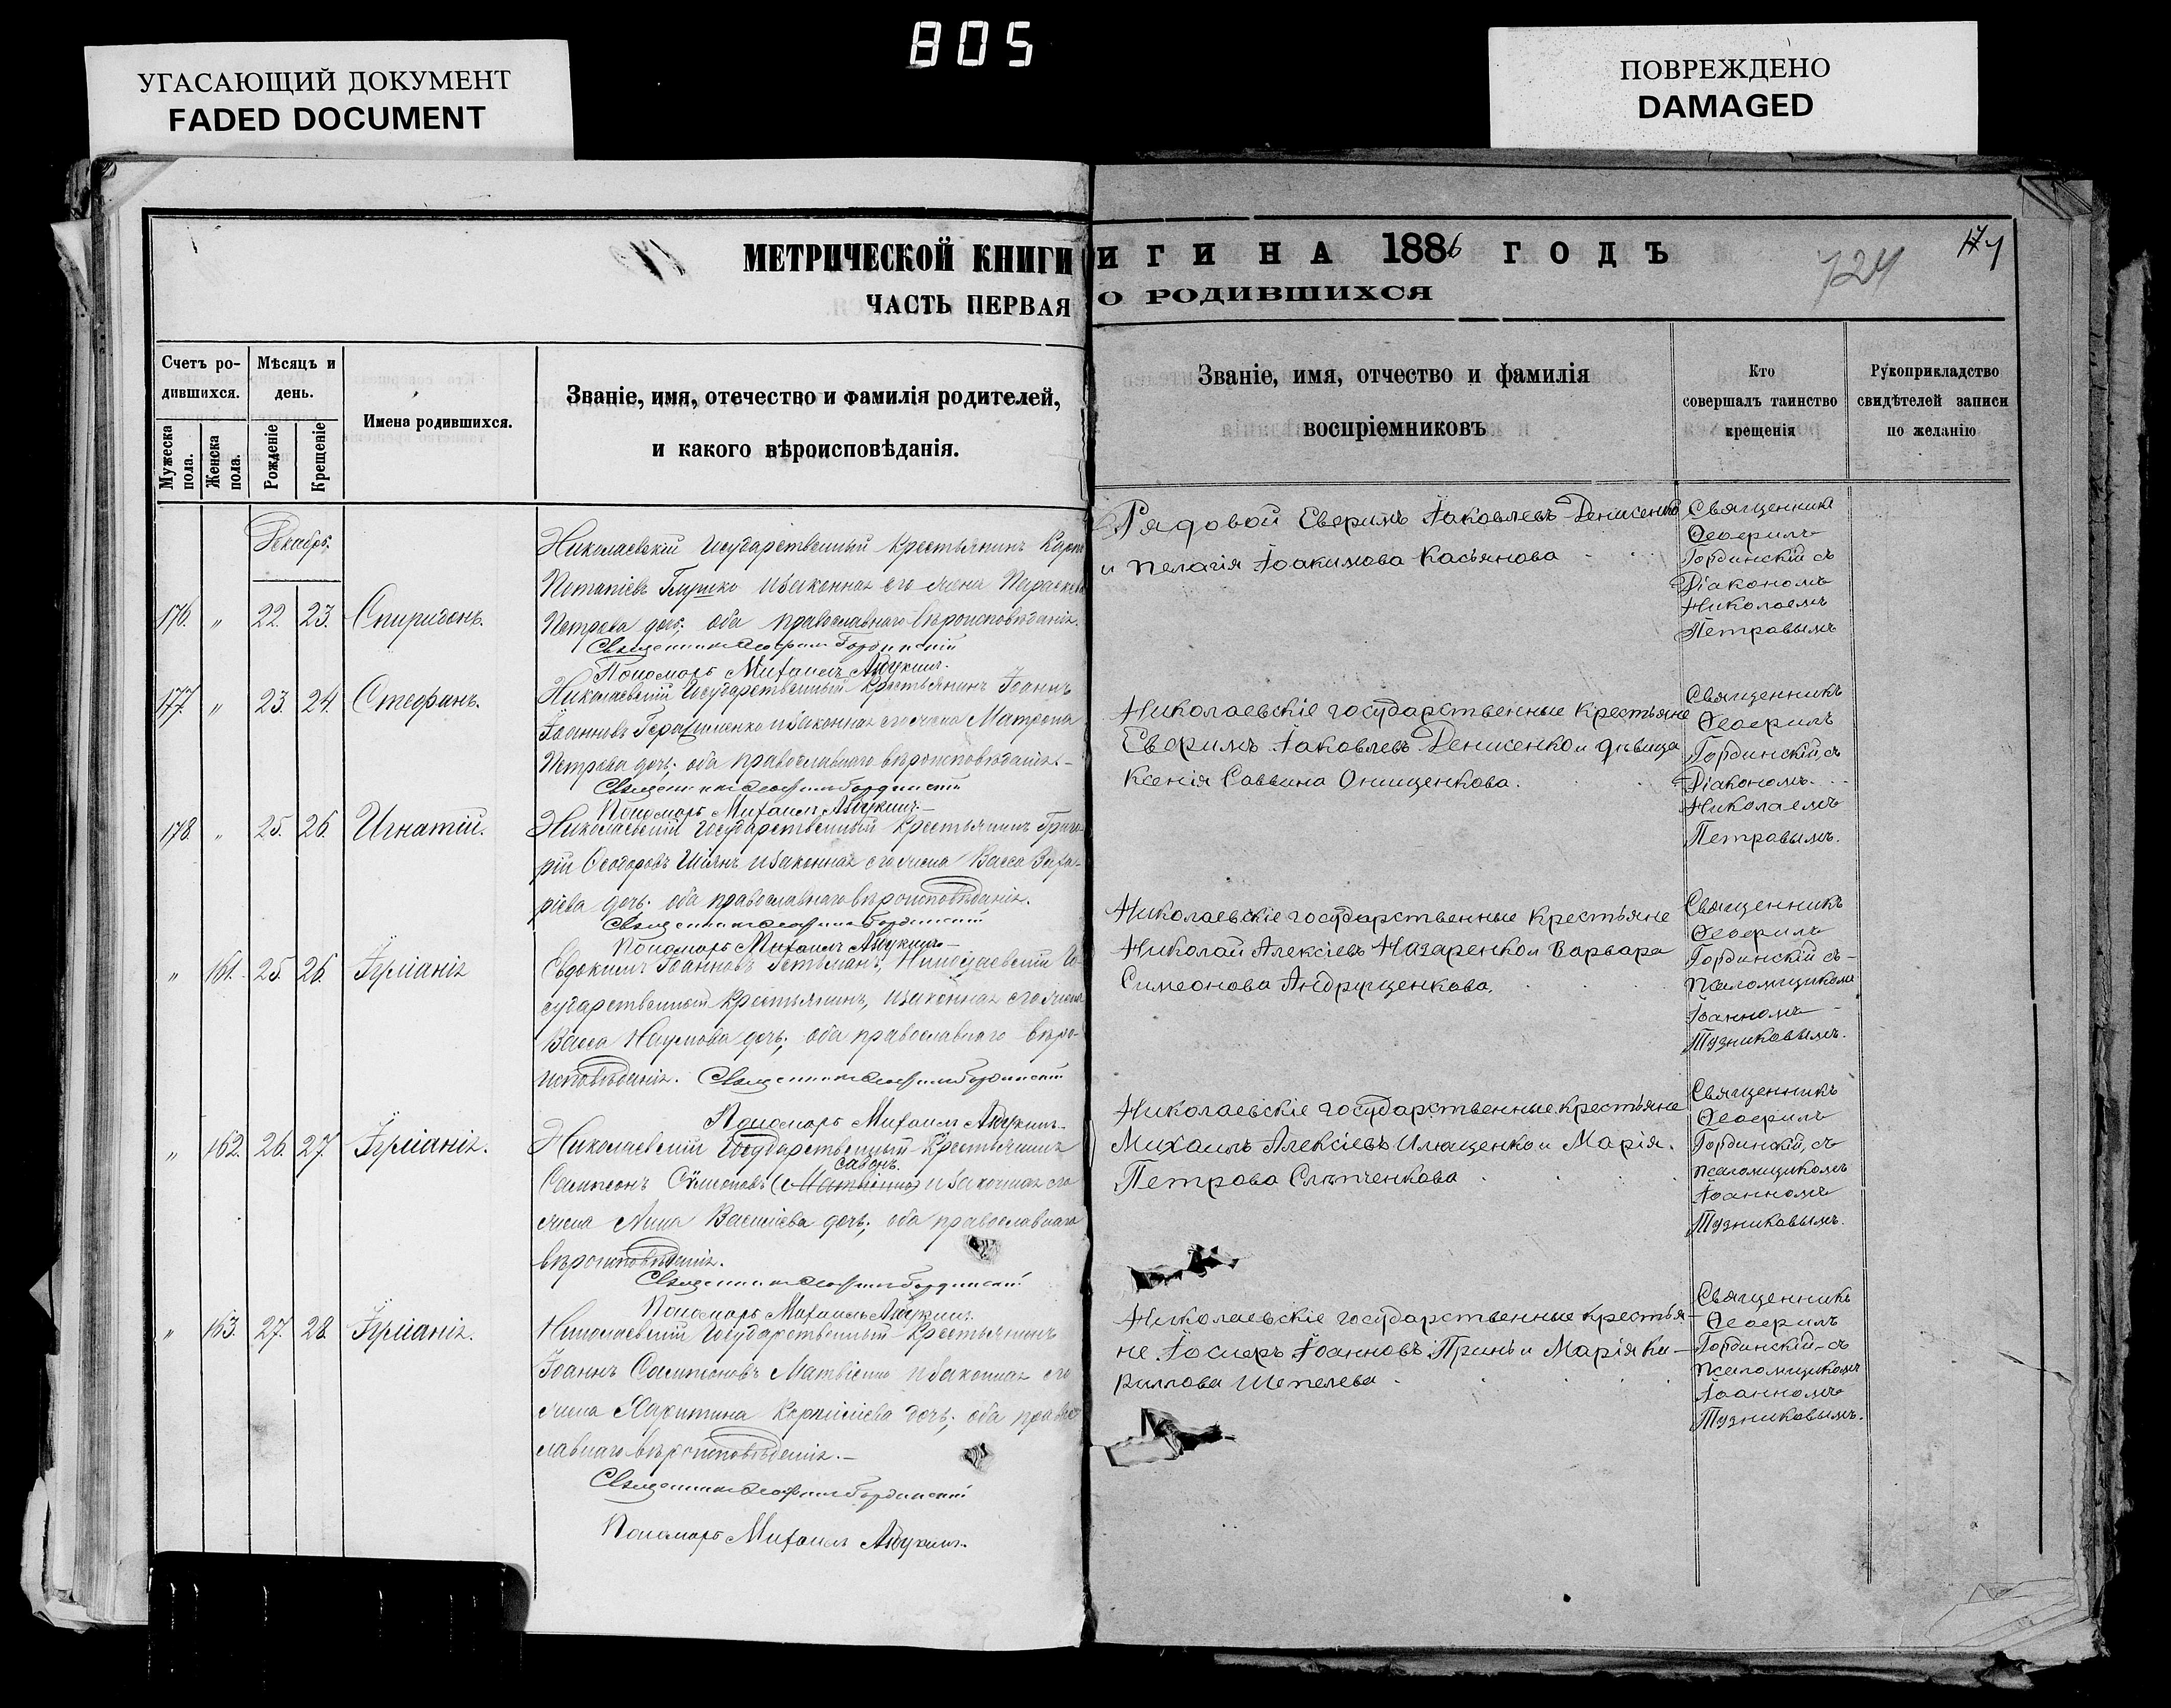 805
УГАСАЮЩИЙ ДОКУМЕНТ
FADED DOCUMENT
ПОВРЕЖДЕНО
DAMAGED
МЕТРИЧЕСКОЙ КНИГИ
ЧАСТЬ ПЕРВАЯ
Счетъ ро-
дившихся.
Мѣсяцъ и
день.
Имена родившихся.
Званіе, имя, отечество и фамилія родителей,
и какого вѣроисповѣданія.
Мужеска
пола.
Женска
пола.
Рожденіе
Крещеніе
Декабрь.
176. " 22. 23. Спиридонъ.
Николаевскій государственный крестьянинъ Карпъ
Потапіевъ и законная его жена Параскева
Петрова дочь; оба православнаго вѣроисповѣданія.
Священникъ Ѳеофилъ Гординскій
Пономарь Михаилъ
177. " 23. 24. Стефанъ.
Николаевскій государственный крестьянинъ Іоаннъ
Іоанновъ Герасименко и законная его жена Матрона
Петрова дочь; оба православнаго вѣроисповѣданія.
Священникъ Ѳеофилъ Гординскій
Пономарь Михаилъ
178. " 25. 26. Игнатій.
Николаевскій государственный крестьянинъ Григо-
рій Ѳеодоровъ и законная его жена Васса Заха-
ріева дочь; оба православнаго вѣроисповѣданія.
Священникъ Ѳеофилъ Гординскій
Пономарь Михаилъ
" 161. 25. 26. Іуліанія
Евдокимъ Іоанновъ Гетьманъ, Николаевскій го-
сударственный крестьянинъ, и законная его жена
Васса Наумова дочь; оба православнаго вѣро-
исповѣданія. Священникъ Ѳеофилъ Гординскій
Пономарь Михаилъ
" 162. 26. 27. Іуліанія.
Николаевскій государственный крестьянинъ
Сампсонъ Сѵмеоновъ (Матвіенко) и законная его
жена Анна Василіева дочь; оба православнаго
вѣроисповѣданія.
Священникъ Ѳеофилъ Гординскій
Пономарь Михаилъ
" 163. 27. 28. Іуліанія.
Николаевскій государственный крестьянинъ
Іоаннъ Сампсоновъ Матвіенко и законная его
жена Харитина Корниліева дочь; оба право-
славнаго вѣроисповѣданія.—
Священникъ Ѳеофилъ Гординскій
Пономарь Михаилъ
ИГИ НА 1886 ГОДЪ
О РОДИВШИХСЯ
724
Званіе, имя, отчество и фамилія
воспріемниковъ
Кто
совершалъ таинство
крещенія
Рукоприкладство
свидѣтелей записи
по желанію
Рядовой Евфимъ Іаковлевъ Денисенко
и Пелагія Іоакимова Касьянова
Священникъ
Ѳеофилъ
Гординскій съ
Діакономъ
Николаемъ
Петровымъ
Николаевскіе государственные крестьяне
Евфимъ Іаковлевъ Денисенко и дѣвица
Ксенія Саввина Онищенкова.
Священникъ
Ѳеофилъ
Гординскій, съ
Діакономъ
Николаемъ
Петровымъ.
Николаевскіе государственные крестьяне
Николай Алексіевъ Назаренко и Варвара
Симеонова Андрущенкова.
Священникъ
Ѳеофилъ
Гординскій съ
Псаломщикомъ
Іоанномъ
Тузниковымъ.
Николаевскіе государственные крестьяне
Михаилъ Алексіевъ Илющенко и Марія
Петрова Слѣпченкова
Священникъ
Ѳеофилъ
Гординскій, съ
Псаломщикомъ
Іоанномъ
Тузниковымъ.
Николаевскіе государственные крестья-
не Іосифъ Іоанновъ Принь и Марія Ки-
рилова Шепелева
Священникъ
Ѳеофилъ
Гординскій съ
Псаломщикомъ
Іоанномъ
Тузниковымъ.